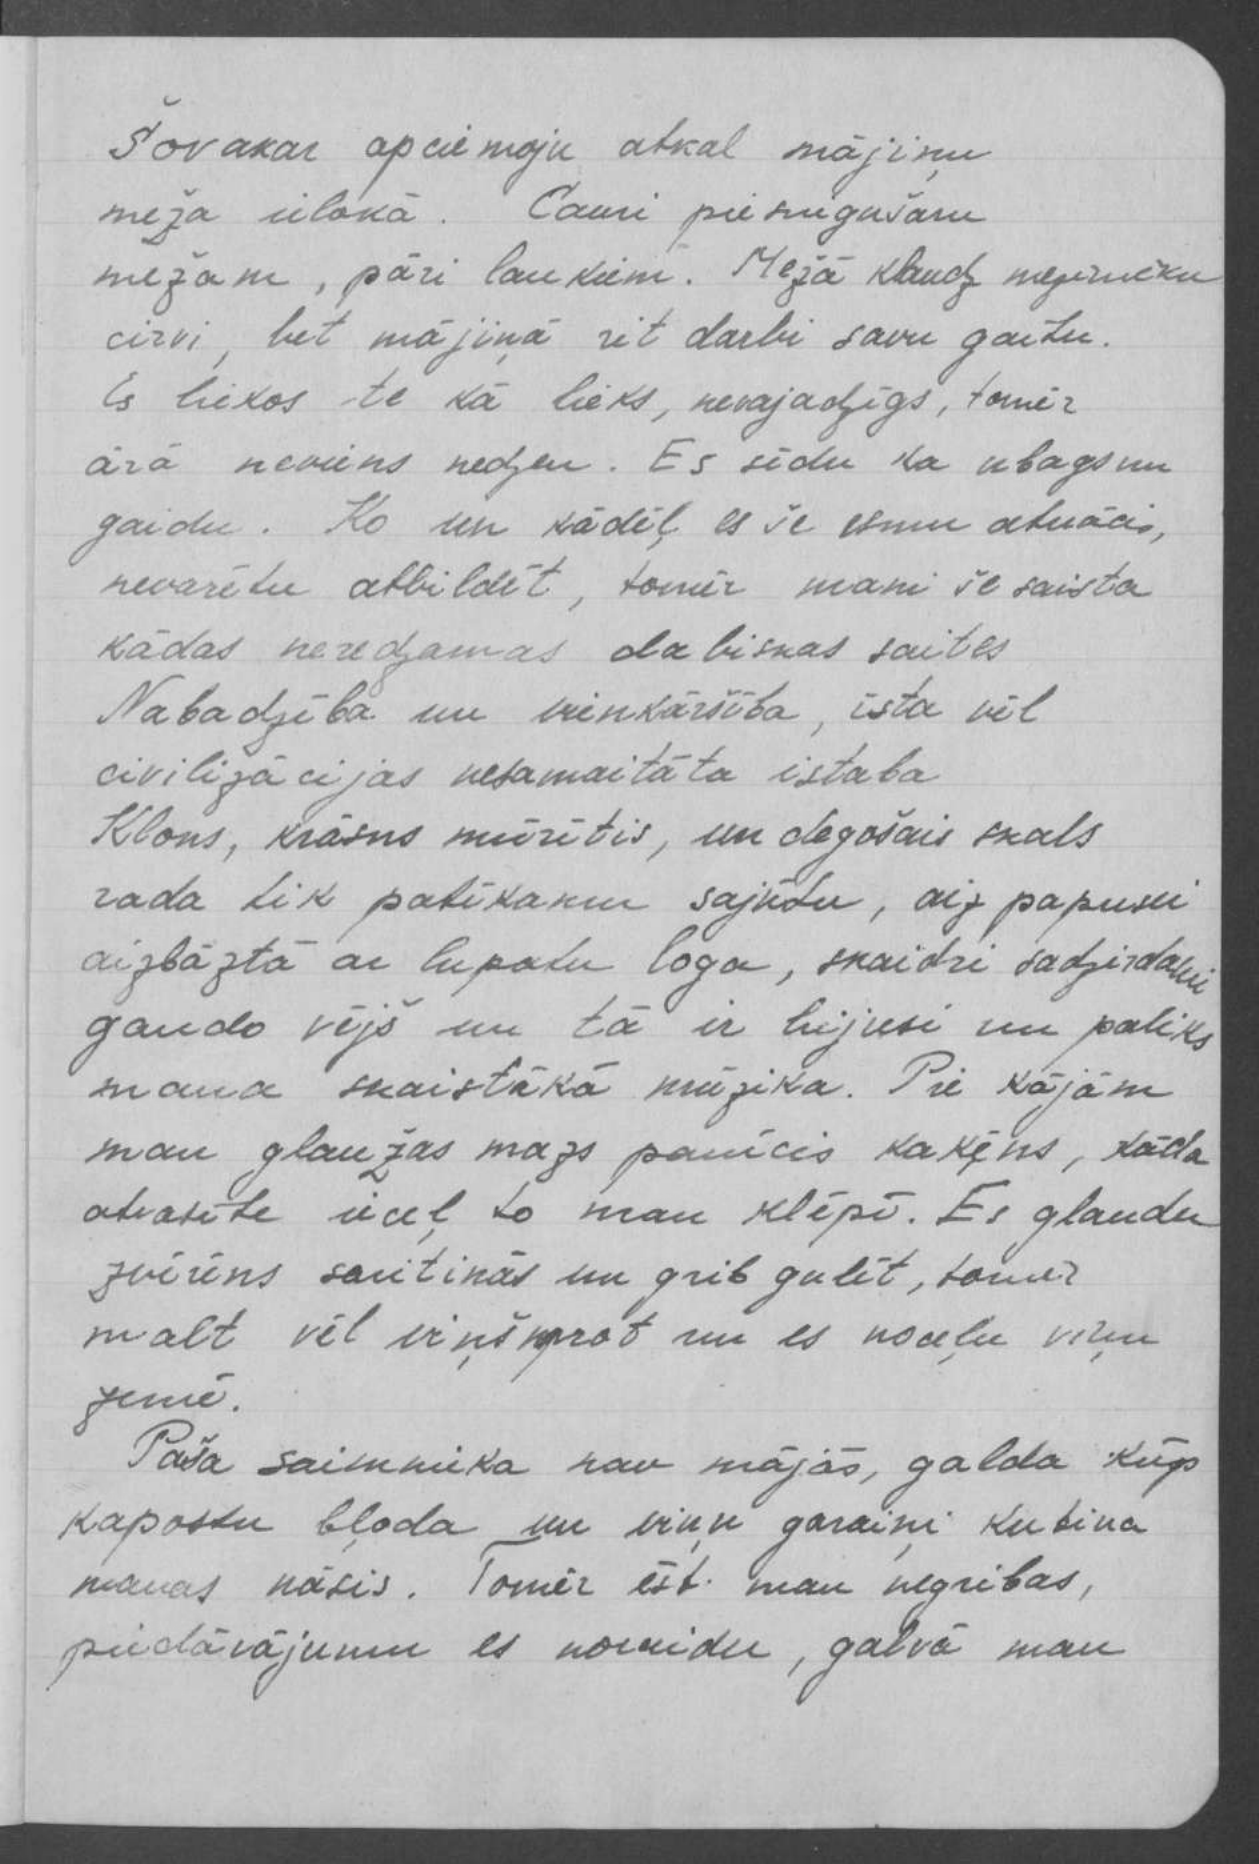 Šovakar apciemoju atkal mājiņu
meža ielokā. Cauri piesnigušam
mežam, pāri laukiem. Mežā klaudz mežinieku
cirvi, bet mājiņā rit darbi savu gaitu.
Es liekos te kā lieks, nevajadzīgs, tomēr
ārā neviens nedzen. Es sēdu ka ubags un
gaidu. Ko un kādēļ es še esmu atnācis,
nevarētu atbildēt, tomēr mani še saista
kādas neredzamas dabiskas saites
Nabadzība un vienkāršība, īsta vēl
civilizācijas nesamaitāta istaba
Klons, krāsns mūrītis, un degošais skals
rada tik patīkamu sajūtu, aiz papusei
aizbāztā ar lupatu loga, skaidri sadzirdami
gaudo vējš un tā ir bijusi un paliks
mana skaistākā mūzika. Pie kājām
man glaužas mazs pamīcis kaķēns, kāda
atvasīte uzceļ to man klēpī. Es glaudu
zvērēns saritinās un grib gulēt, tomēr
malt vēl viņš neprot un es noceļu viņu
zemē.
Paša saimnieka nav mājās, galda kūp
kapostu bļoda un viņu garaiņi kutina
manas nāsis. Tomēr ēst man negribas,
piedāvājumu es noraidu, galvā man